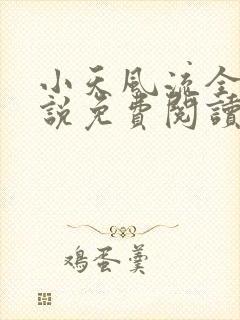 小天風流全
說免費閱讀
鸡蛋羹